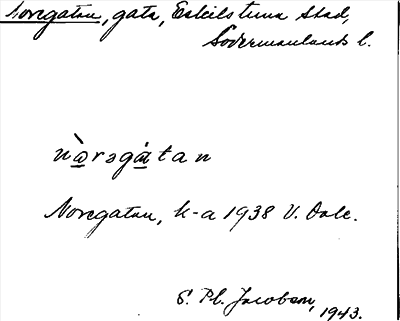 Noregatan, gata, Eskilstuna stad,
Södermanlands l.
nὼrəgátan
Noregatan, k-a 1938 V. Dale.
S. Pl. Jacobson,
1943.